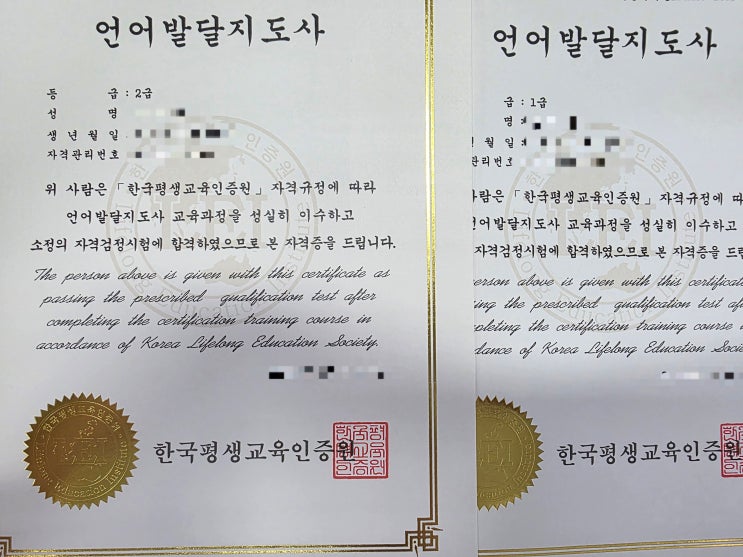 언어발달지도사
등 급 : 2급
성 명
생년월일 :
자격관리번호
위 사람은「한국평생교육인증원」자격규정에 따라
언어발달지도사 교육과정을 성실히 이수하고
소정의 자격검정시험에 합격하였으므로 본 자격증을 드립니다.
The person above is given with this certificate as
passing the prescribed qualification test after
completing the certification training course in
accordance of Korea Lifelong Education Society.
한국평생교육인증원
언어발달지도사
급 : 1급
명 :
월일 :
관리번호
사람은「한국평생교육인증원」자격규정에 따
언어발달지도사 교육과정을 성실히 이수하고
자격검정시험에 합격하였으므로 본 자격증을 드립니
erson above is given with this certificate
ing the prescribed qualification test aft
pleting the certification training course
dance of Korea Lifelong Education Socie
한국평생교육인증원